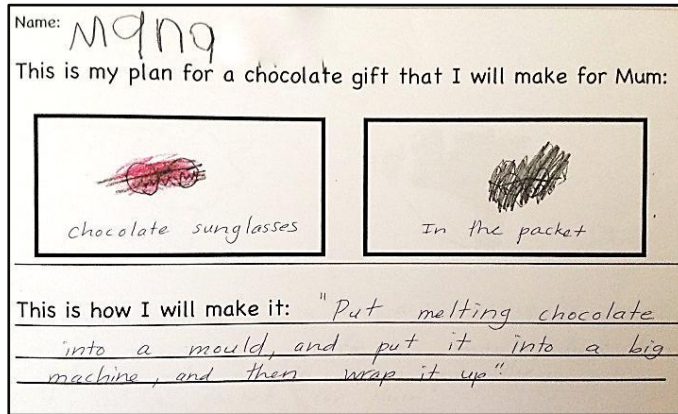 Name: Mana
This is my plan for a chocolate gift that I will make for Mum:
chocolate sunglasses
In the packet
This is how I will make it: "Put melting chocolate
into a mould, and put it into a big
machine, and then wrap it up".